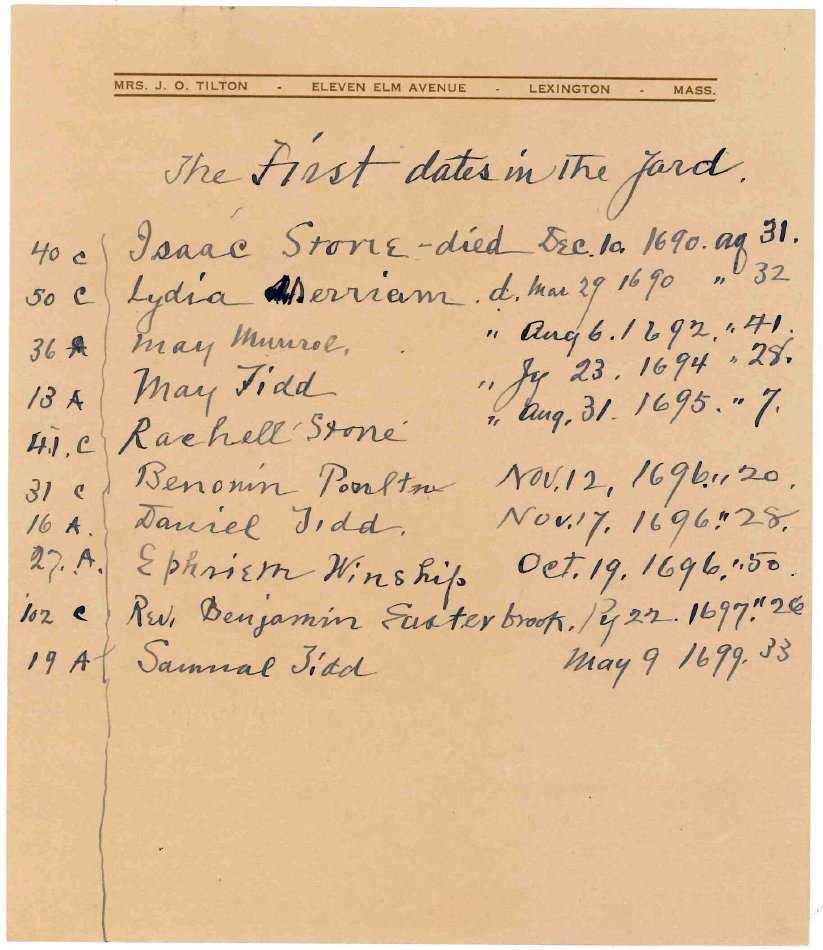 MRS. J. O. TILTON - ELEVEN ELM AVENUE - LEXINGTON - MASS.
The First dates in the Yard.
40 C Isaac Stone - died Dec. 10. 1690. ag 31.
50 C Lydia Merriam. d. Mar 29 1690 " 32
36 A May Munroe. " Aug 6. 1692. " 41.
13 A May Tidd " Jy 23. 1694 " 28.
41. C Rachell Stone " Aug. 31. 1695. " 7.
31 C Benonin Poulton Nov. 12, 1696. " 20.
16 A. Daniel Tidd. Nov. 17. 1696. " 28.
27. A. Ephriem Winship Oct. 19. 1696. " 50.
102 C Rev. Benjamin Easterbrook. Jy 22. 1697. " 26
19 A Samual Tidd May 9 1699. 33